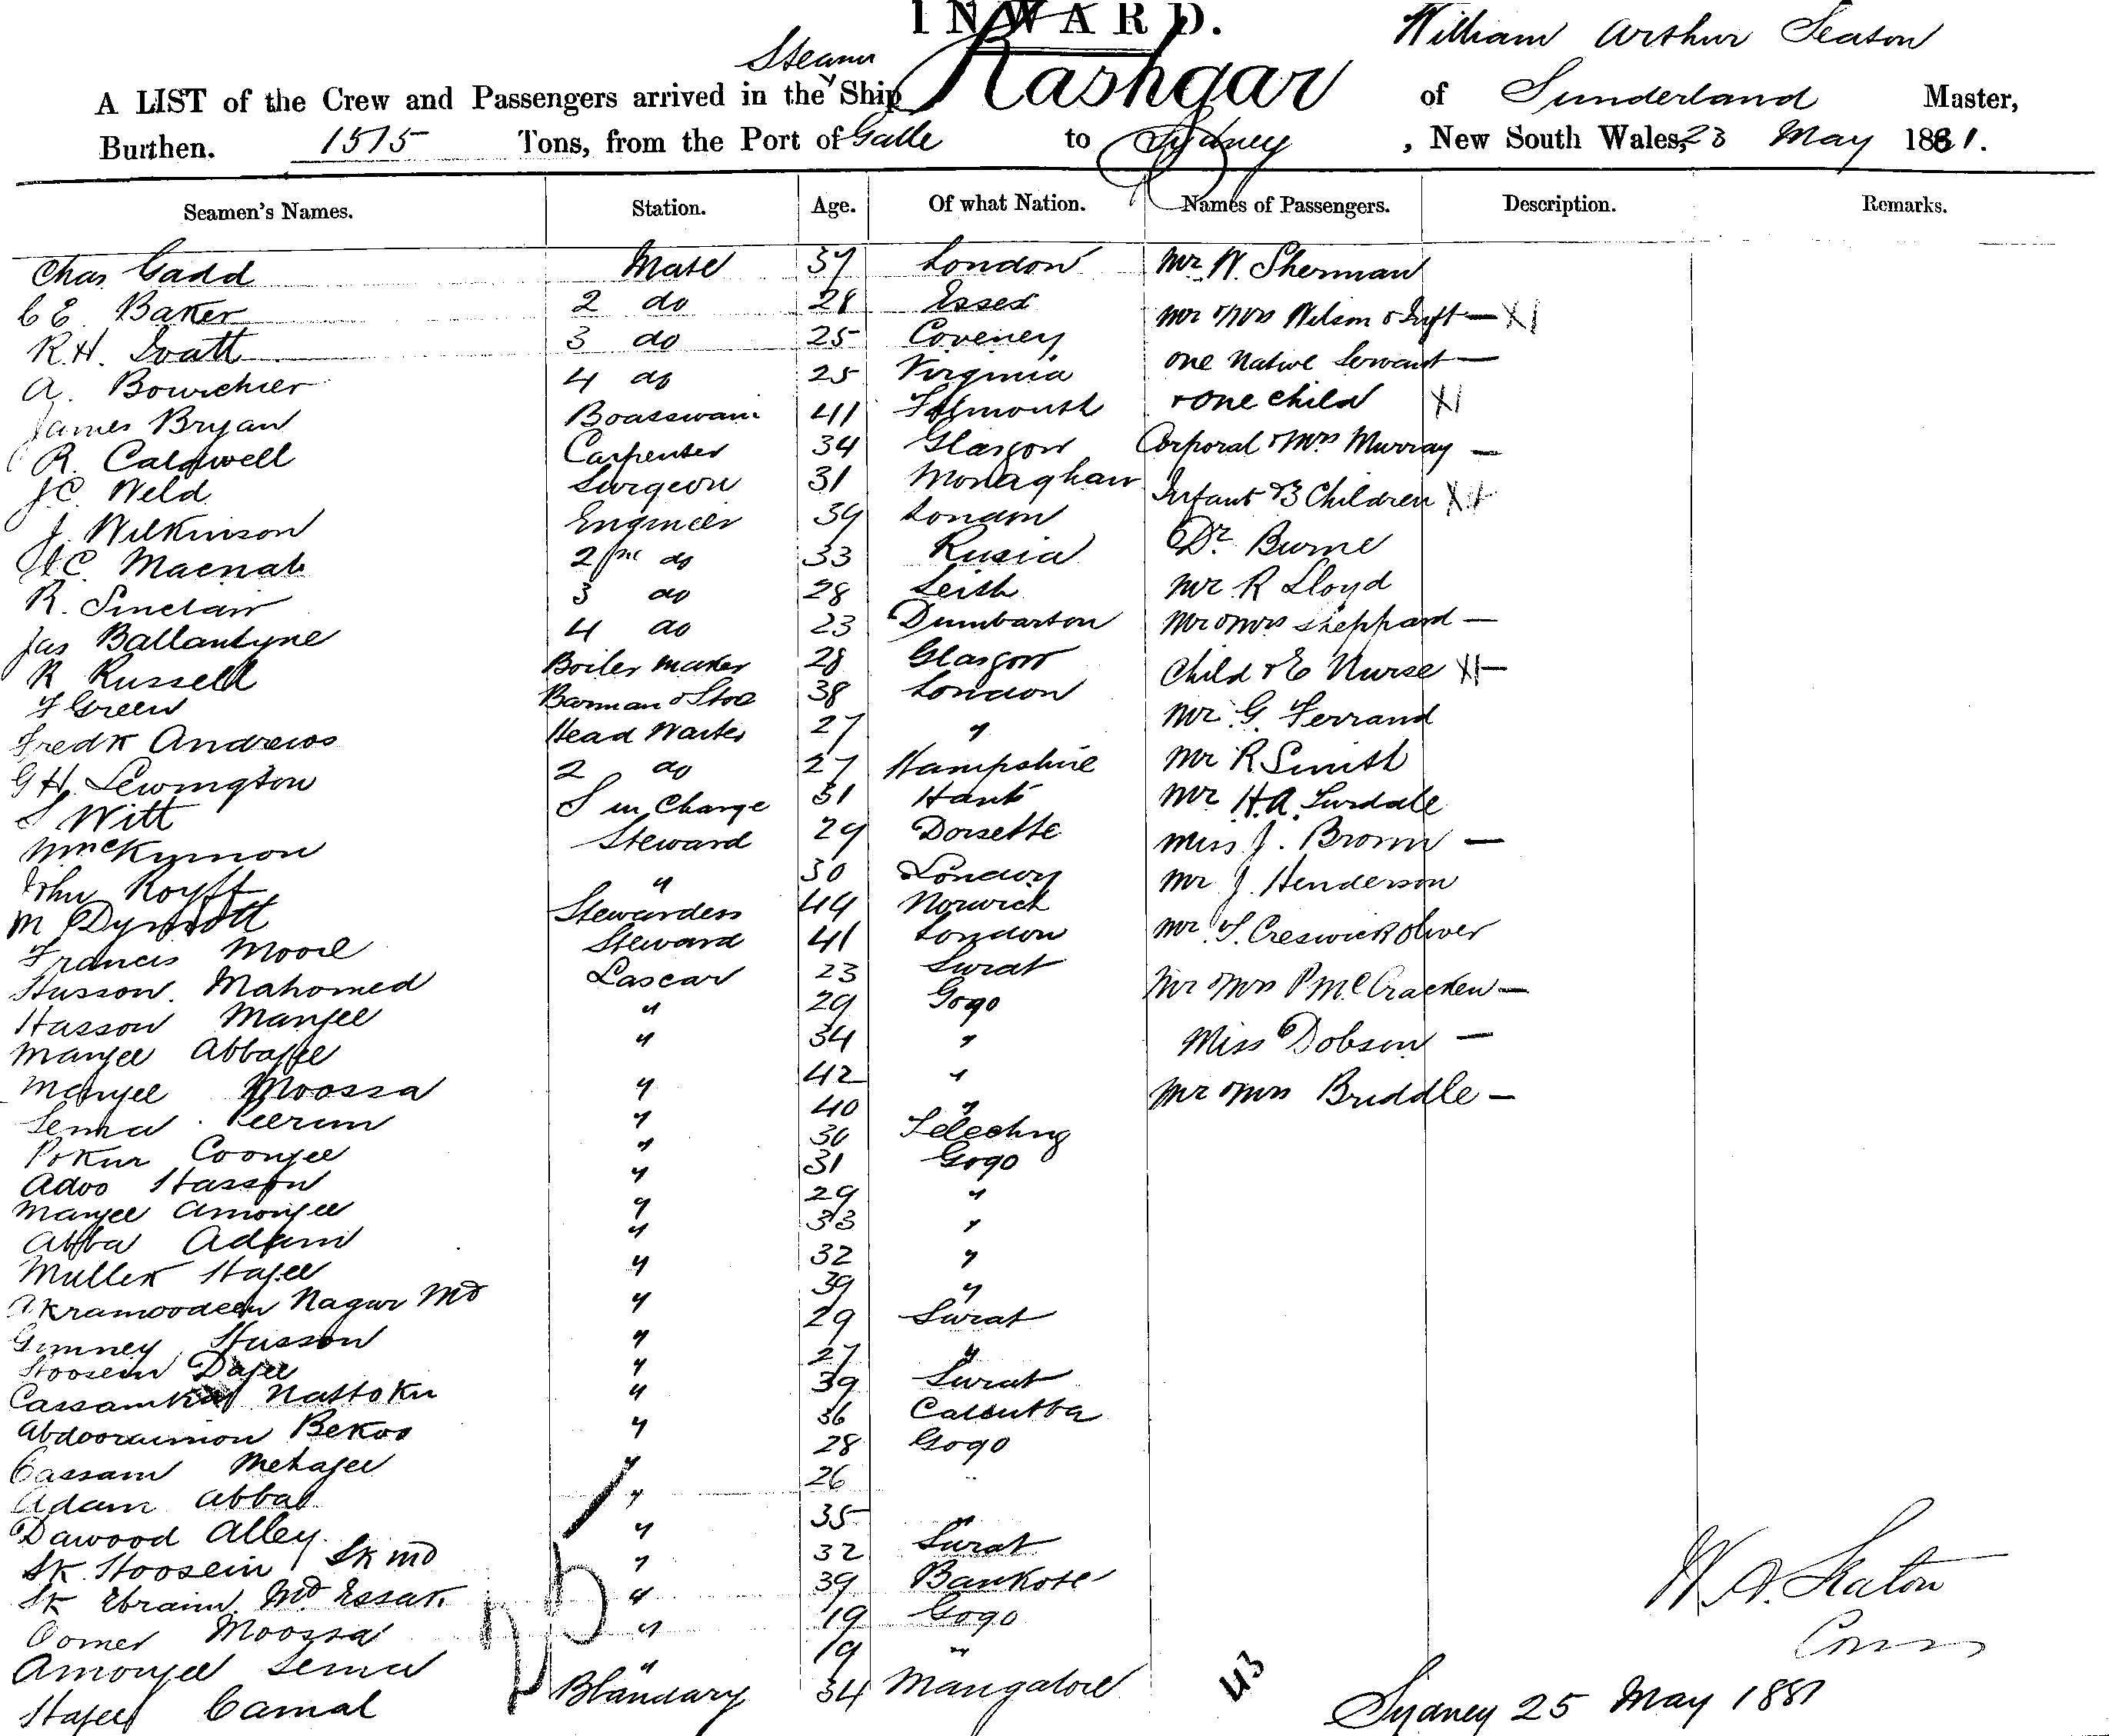 INWARD.
William Arthur Seaton
Steam
A LIST of the Crew and Passengers arrived in the Ship Kashgar of Sunderland Master,
Burthen. 1515 Tons, from the Port of Galle to Sydney, New South Wales, 23 May 1881.
Seamen's Names. Station. Age. Of what Nation. Names of Passengers. Description. Remarks.
Chas Gadd Mate 37 London Mr W. Sherman
C E. Baker 2 do 28 Essex Mr & Mrs Wilson & Inft — X1
R.H. 3 do 25 Coveney one Native Servant —
A. Bourchier 4 do 25 Virginia + one child X1
James Bryan Boatswain 41 Falmouth Corporal & Mrs Murray —
R. Caldwell Carpenter 34 Glasgow Infant & 3 Children
J C. Weld Surgeon 31 Monaghan Dr. Burne
J. Wilkinson Engineer 39 London Mr R Lloyd
C. Macnab 2 do 33 Rusia Mr & Mrs Sheppard —
R. Sinclair 3 do 28 Leith Child & E Nurse
Jas Ballantyne 4 do 23 Dumbarton Mr G. Ferrand
R Russell Boiler maker 28 Glasgow Mr R Smith
F Green Barman & Store 38 London Mr H.A.
Fredk Andrews Head Waiter 27 " Miss J. Brown —
G H. Lewington 2 do 27 Hampshire Mr J. Henderson
S Witt S in Charge 31 Hants Mr T. Creswick Oliver
Wm Steward 29 Dorsette Mr & Mrs P McCracken —
John " 30 London Miss Dobson —
M Stewardess 44 Norwich Mr & Mrs Briddle —
Francis Moore Steward 41 London
Husson Mahomed Lascar 23 Surat
Hasson Manjee " 29 Gogo
Manjee Abbajee " 34 "
Manjee Moossa " 42 "
Sema Peerun " 40 "
Pokur Coonjee " 36
Adoo Hasson " 31 Gogo
Manjee Amonjee " 29 "
Abba Adam " 33 "
Mullek Hajee " 32 "
Nagur Md " 39 "
Husson " 29 Surat
Hoosein Dajee " 27 "
" 39 Surat
Bekoo " 36 Calcutta
Cassam Metajee " 28 Gogo
Adam Abba " 26
Dawood Alley " 35 "
Sk Hoosein Sk Md " 32 Surat
Sk Ebraim Md Essak " 39 Bankote
Oomer Moossa " 19 Gogo
Amonjee Sema " 19 "
Hajee Camal Bhandary 34 Mangalore
43
W. A. Seaton
Sydney 25 May 1881